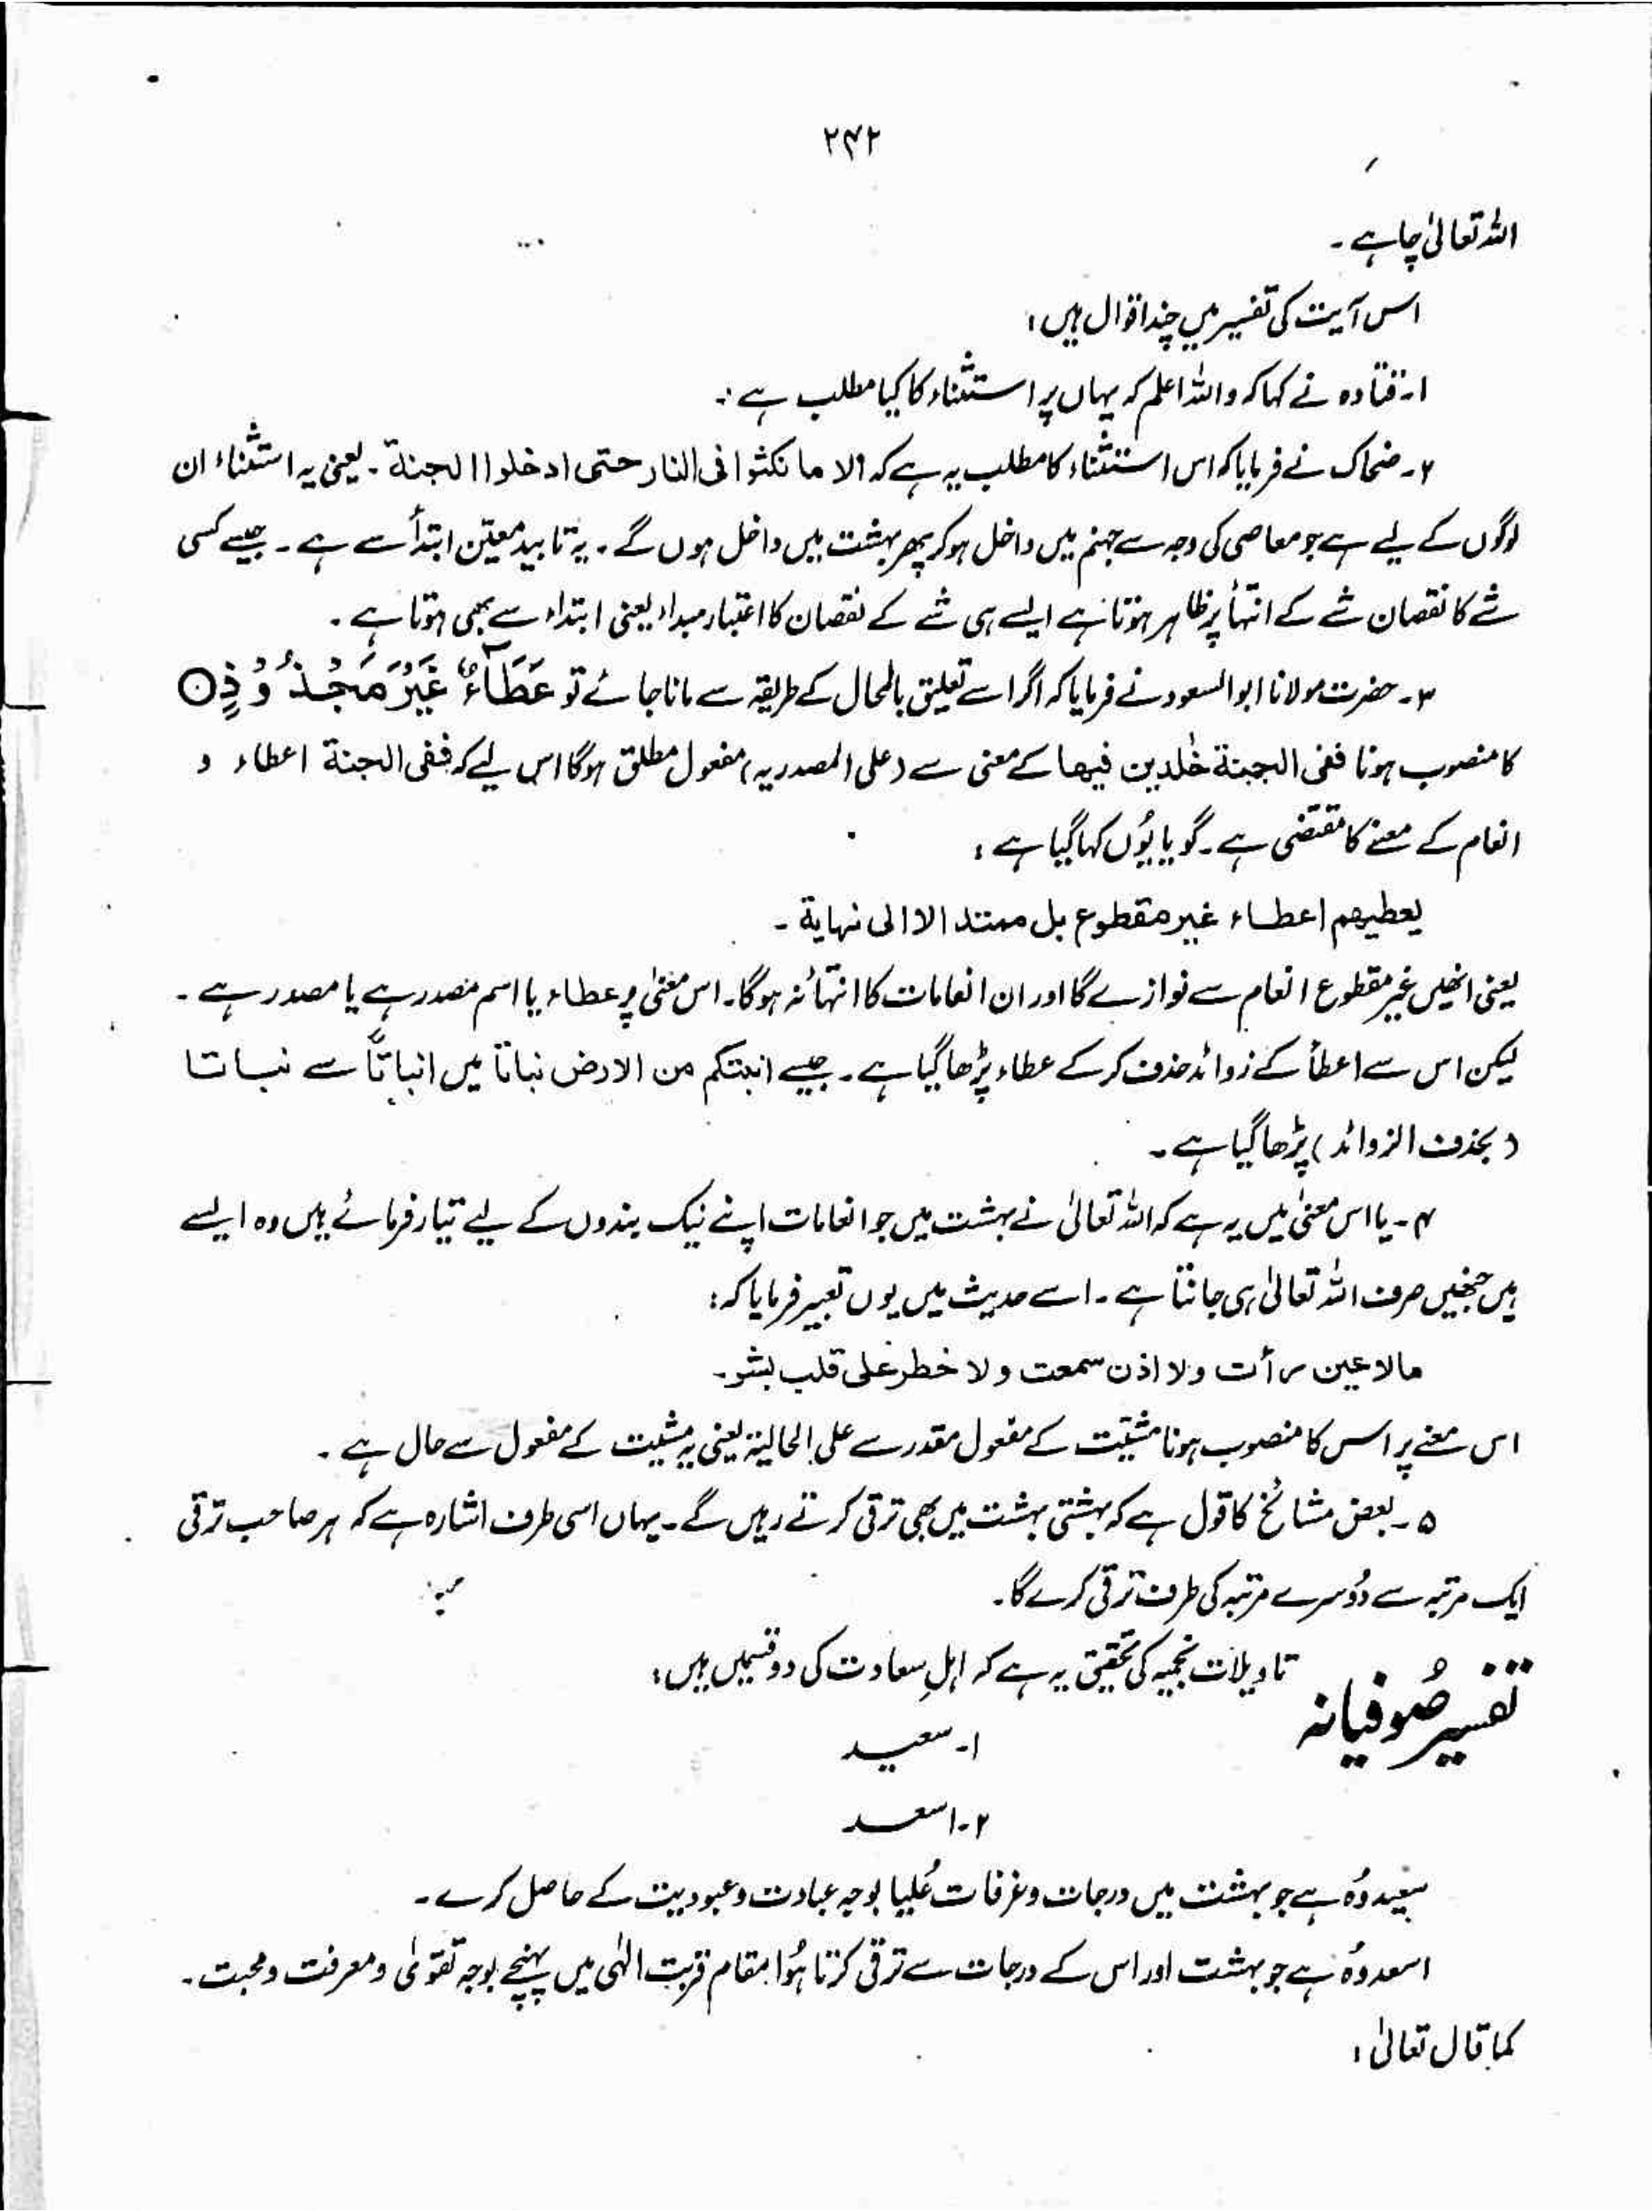 ۲۴۲
اللہ تعالیٰ چاہے ۔
اس آیت کی تفسیر میں چند اقوال ہیں :
۱۔ قتادہ نے کہا کہ واللہ اعلم کہ یہاں پر استثناء کا کیا مطلب ہے :۔
۲۔ ضحاک نے فرمایا کہ اس استثناء کا مطلب یہ ہے کہ الا ما نکثوا فی النار حتی ادخلوا الجنة ۔ یعنی یہ استثناء ان
لوگوں کے لیے ہے جو معاصی کی وجہ سے جہنم میں داخل ہو کر پھر بہشت میں داخل ہوں گے ۔ یہ تابید معیّن ابتدأ سے ہے ۔ جیسے کسی
شے کا نقصان شے کے انتہأ پر ظاہر ہوتا ہے ایسے ہی شے کے نقصان کا اعتبار مبداء یعنی ابتداء سے بھی ہوتا ہے ۔
۳۔ حضرت مولانا ابوالسعود نے فرمایا کہ اگر اسے تعلیق بالمحال کے طریقہ سے مانا جائے تو عَطَآءً غَیْرَ مَجْذُوْذٍ ○
کا منصوب ہونا ففی الجنة خٰلدین فیھا کے معنی سے (علی المصدریہ) مفعول مطلق ہوگا اس لیے کہ ففی الجنة اعطاء و
انعام کے معنے کا مقتضی ہے ۔ گویا یُوں کہا گیا ہے :
یعطیھم اعطاء غیر مقطوع بل ممتد الا الی نہایة ۔
یعنی انھیں غیر مقطوع انعام سے نوازے گا اور ان انعامات کا انتہأ نہ ہوگا ۔ اس معنیٰ پر عطاء یا اسم مصدر ہے یا مصدر ہے ۔
لیکن اس سے اعطأ کے زوائد حذف کر کے عطاء پڑھا گیا ہے ۔ جیسے انبتکم من الارض نباتا میں انباتًا سے نباتا
(بحذف الزوائد) پڑھا گیا ہے ۔
۴۔ یا اس معنیٰ میں یہ ہے کہ اللہ تعالیٰ نے بہشت میں جو انعامات اپنے نیک بندوں کے لیے تیار فرمائے ہیں وہ ایسے
ہیں جنھیں صرف اللہ تعالیٰ ہی جانتا ہے ۔ اسے حدیث میں یوں تعبیر فرمایا کہ :
مالا عین رأت ولا اذن سمعت ولا خطر علی قلب بشر ۔
اس معنے پر اس کا منصوب ہونا مشیّت کے مفعول مقدر سے علی الحالیۃ یعنی یہ مشیت کے مفعول سے حال ہے ۔
۵۔ بعض مشائخ کا قول ہے کہ بہشتی بہشت میں بھی ترقی کرتے رہیں گے ۔ یہاں اسی طرف اشارہ ہے کہ ہر صاحب ترقی
ایک مرتبہ سے دُوسرے مرتبہ کی طرف ترقی کرے گا ۔
تفسیر صُوفیانہ
تاویلات نجمیہ کی تحقیق یہ ہے کہ اہلِ سعادت کی دو قسمیں ہیں :
۱۔ سعید
۲۔ اسعد
سعید وُہ ہے جو بہشت میں درجات و غرفات عُلیا بوجہ عبادت و عبودیت کے حاصل کرے ۔
اسعد وُہ ہے جو بہشت اور اس کے درجات سے ترقی کرتا ہُوا مقام قربت الٰہی میں پہنچے بوجہ تقویٰ و معرفت و محبت ۔
کما قال تعالیٰ :